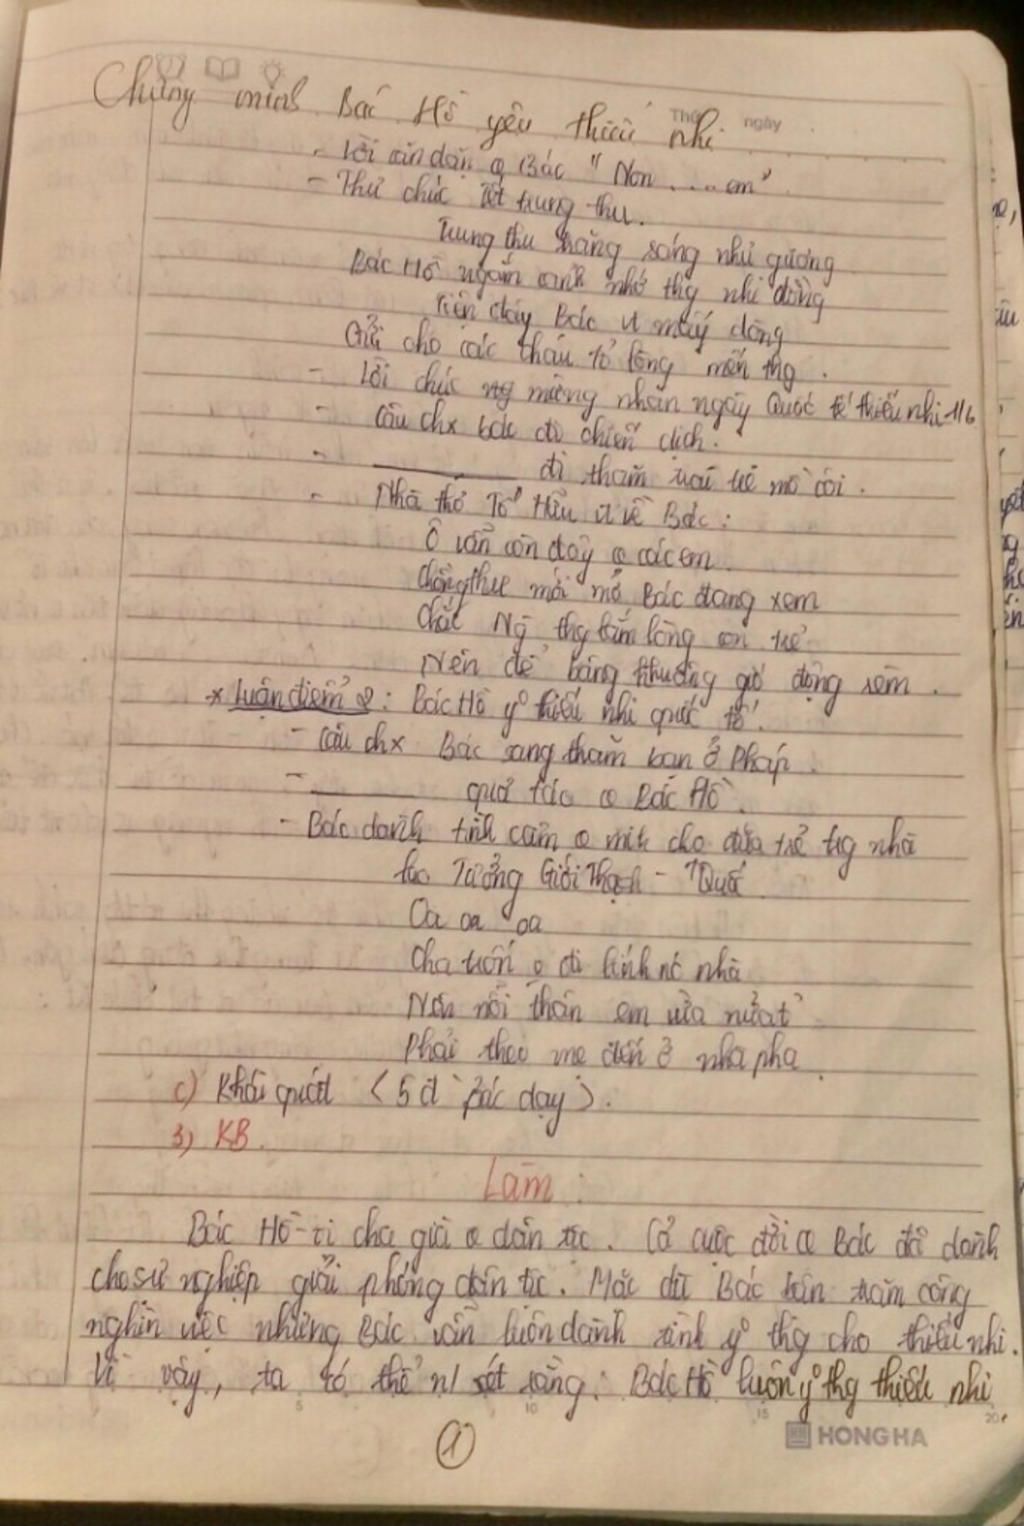 Chứng minh Bác Hồ yêu thiếu nhi
Thứ ngày
- Lời căn dặn Bác "Non .... em"
- Thư chúc Tết trung thu.
Trung thu trăng sáng như gương
Bác Hồ ngắm cảnh nhớ thg nhi đồng
Tiện đây Bác mấy dòng
Gửi cho các cháu tỏ lòng mến thg.
- Lời chúc mừng nhân ngày Quốc tế thiếu nhi 1/6
- Câu chx Bác đi chiến dịch.
- ______ đi thăm trại trẻ mồ côi.
- Nhà thơ Tố Hữu về Bác:
Ô vẫn còn đây các em
Chồng thư mới mở Bác đang xem
Chắc Ng thg lắm lòng con trẻ
Nên để bâng khuâng gió động rèm.
* Luận điểm 2: Bác Hồ y thiếu nhi quốc tế.
- Câu chx Bác sang thăm bạn ở Pháp.
- ______ quả táo Bác Hồ.
- Bác dành tình cảm mình cho đứa trẻ tg nhà
lao Tưởng Giới Thạch - TQuốc
Oa oa oa
Cha trốn đi lính nc nhà
Nên nỗi thân em vừa nửa t
Phải theo mẹ đến ở nhà pha.
c) Khái quát (5 đ Bác dạy).
3) KB.
Làm:
Bác Hồ - cha già dân tộc. Cả cuộc đời Bác đã dành
cho sự nghiệp giải phóng dân tộc. Mặc dù Bác bận trăm công
nghìn việc nhưng Bác vẫn luôn dành y thg cho thiếu nhi.
Vì vậy, ta có thể n/ xét rằng: Bác Hồ luôn y thg thiếu nhi
5 10 15 20
1
HONG HA